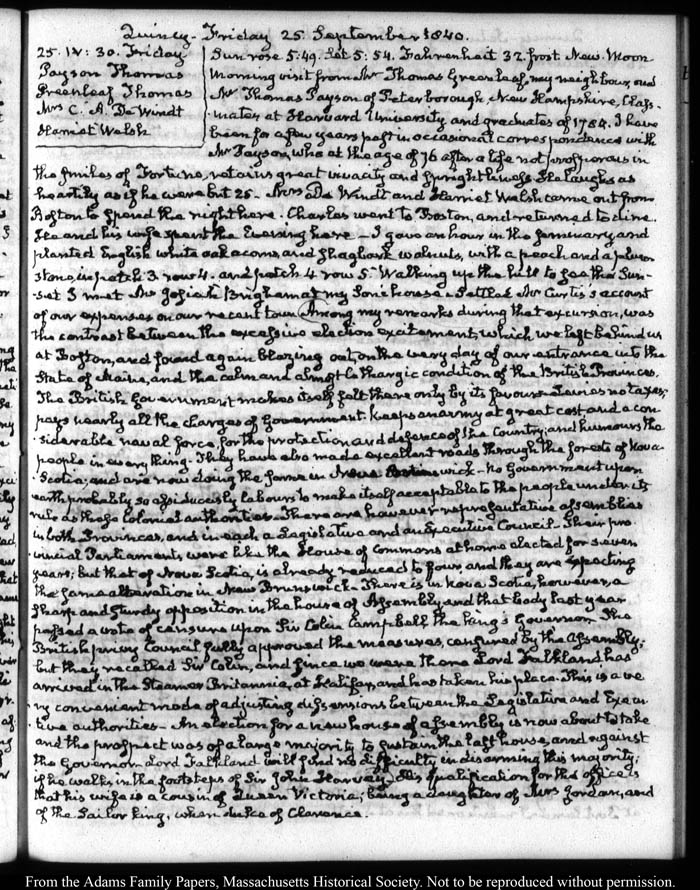 Quincy - Friday 25. September 1840.
25. IV: 30. Friday
Payson Thomas
Greenleaf Thomas
Mrs C. A. De Windt
Harriet Welsh
Sun rose 5:49. Set 5:54. Fahrenheit 32. frost. New Moon
Morning visit from Mr Thomas Greenleaf, my neighbour, and
Mr Thomas Payson of Peterborough, New Hampshire, Class-
mates at Harvard University and graduates of 1784. I have
been for a few years past in occasional correspondence with
Mr Payson, who at the age of 76 after a life not prosperous in
the smiles of Fortune, retains great vivacity and sprightliness. He laughs as
heartily as if he were but 25 - Mrs De Windt and Harriet Welsh came out from
Boston to spend the night here. Charles went to Boston, and returned to dine.
He and his wife spent the Evening here - I gave an hour in the seminary and
planted English white oak acorns, and shagbark walnuts, with a peach and a plum
stone, in patch 3 row 4. and patch 4 row 5. Walking up the hill to see the Sun-
set I met Mr Josiah Brigham at my Son's house - Settled Mr Curtis's account
of our expenses on our recent tour. Among my remarks during that excursion, was
the contrast between the excessive election excitement, which we left behind us
at Boston, and found again blazing out, on the very day of our entrance into the
State of Maine, and the calm and almost lethargic condition of the British Provinces.
The British Government makes itself felt there only by its favours - Levies no taxes;
pays nearly all the charges of Government. keeps an army at great cost and a con-
siderable naval force, for the protection and defence of the Country; and humours the
people in every thing. They have also made excellent roads through the forests of Nova-
Scotia; and are now doing the same in New Brunswick - no Government upon
earth probably so assiduously labours to make itself acceptable to the people under its
rule as these Colonial authorities. There are however representative assemblies
in both Provinces, and in each a Legislative and an Executive Council. Their pro-
vincial Parliaments, were like the House of Commons at home elected for seven
years; but that of Nova Scotia, is already reduced to four, and they are expecting
the same alteration in New Brunswick. There is in Nova Scotia, however, a
sharp and sturdy opposition in the house of Assembly, and that body last year
passed a vote of censure upon Sir Colin Campbell the King's Governor. The
British privy Council fully approved the measures, censured by the Assembly;
but they recalled Sir Colin, and since we were there Lord Falkland has
arrived in the Steamer Britannia, at Halifax, and has taken his place. This is a ve-
ry convenient mode of adjusting dissensions between the Legislative and Execu-
tive authorities - An election for a new house of Assembly is now about to take
and the prospect was of a large majority to sustain the last house, and against
the Governor. Lord Falkland will find no difficulty in disarming this majority;
if he walks in the footsteps of Sir John Harvey. His qualification for the office is
that his wife is a cousin of Queen Victoria; being a daughter of Mrs Jordan, and
of the Sailor King, when duke of Clarence.
From the Adams Family Papers, Massachusetts Historical Society. Not to be reproduced without permission.